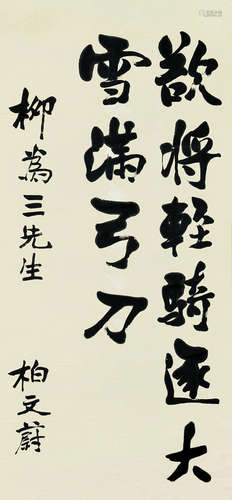 欲将輕騎逐大
雪滿弓刀
柳為三先生
柏文蔚